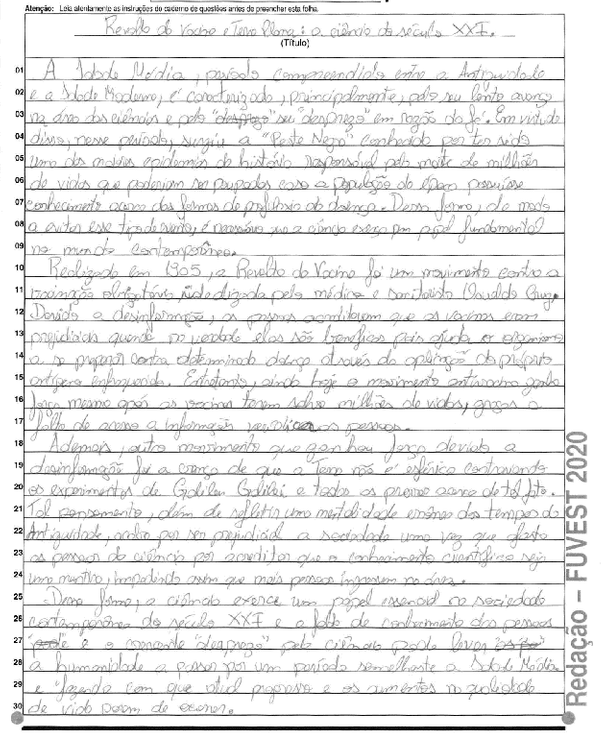 Atenção: Leia atentamente as instruções do caderno de questões antes de preencher esta folha.
Revolta da Vacina e Terra Plana: a ciência do século XXI.
(Título)
01 A Idade Média, período compreendido entre a Antiguidade
02 e a Idade Moderna, é caracterizado, principalmente, pelo seu lento avanço
03 na área das ciências e pelo seu "desprezo" em razão da fé. Em virtude
04 disso, nesse período, surgiu a "Peste Negra" conhecida por ter sido
05 uma das maiores epidemias da história responsável pela morte de milhões
06 de vidas que poderiam ser poupadas caso a população da época possuísse
07 conhecimento acerca das formas de profilaxia da doença. Dessa forma, de modo
08 a evitar esse tipo de evento, é necessário que a ciência exerça um papel fundamental
09 no mundo contemporâneo.
10 Realizada em 1905, a Revolta da Vacina foi um movimento contra a
11 vacinação obrigatória idealizada pelo médico e sanitarista Oswaldo Cruz.
12 Devido a desinformação, as pessoas acreditavam que as vacinas eram
13 prejudiciais quando na verdade elas são benéficas pois ajuda o organismo
14 a se preparar contra determinada doença através da aplicação do próprio
15 antígeno enfraquecido. Entretanto, ainda hoje o movimento antivacina ganha
16 força mesmo após as vacinas terem salvo milhões de vidas, graças a
17 falta de acesso a informação verídica as pessoas.
18 Ademais, outro movimento que ganhou força devido a
19 desinformação foi a crença de que a Terra não é esférica contrariando
20 os experimentos de Galileu Galilei e todas as provas acerca de tal fato.
21 Tal pensamento, além de refletir uma mentalidade errônea dos tempos da
22 Antiguidade, acaba por ser prejudicial a sociedade uma vez que afasta
23 as pessoas da ciência por acreditar que o conhecimento científico seja
24 uma mentira, impedindo assim que mais pessoas ingressem na área.
25 Dessa forma, a ciência exerce um papel essencial na sociedade
26 contemporânea do século XXI e a falta de conhecimento das pessoas
27 e o constante "desprezo" pela ciência pode levar
28 a humanidade a passar por um período semelhante a Idade Média
29 e fazendo com que atual progresso e os aumentos na qualidade
30 de vida parem de ocorrer.
Redação – FUVEST 2020